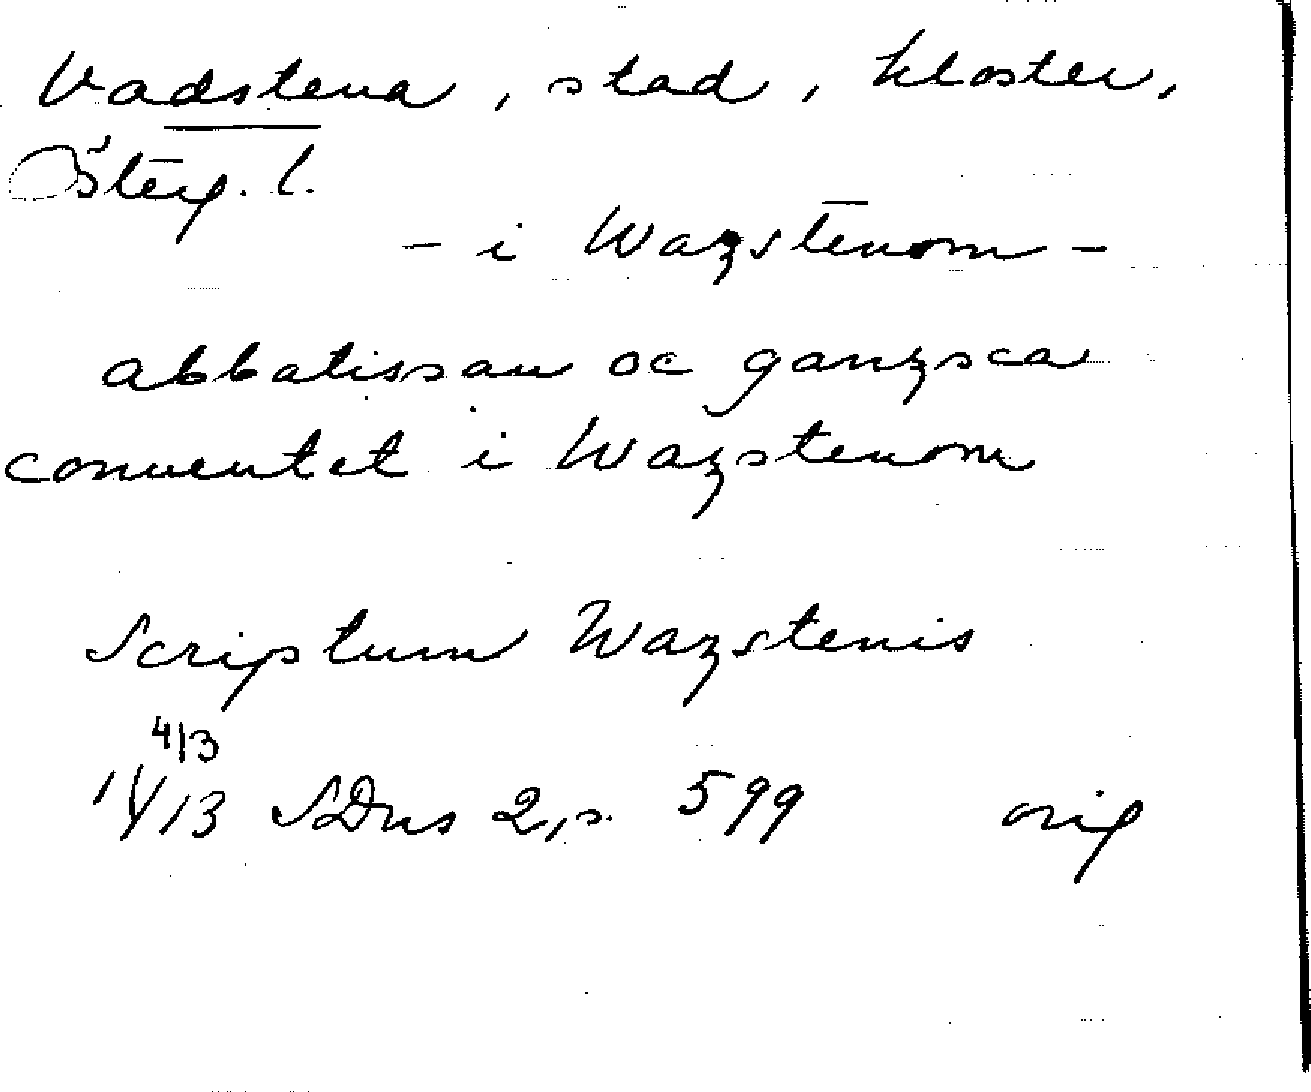 Vadstena, stad, kloster,
Österg. l.
- i Wazstenom -
abbatissan oc ganzsca
conuentet i Wazstenom
Scriptum Wazstenis
4/3
14/13 SDns 2, s. 599 orig